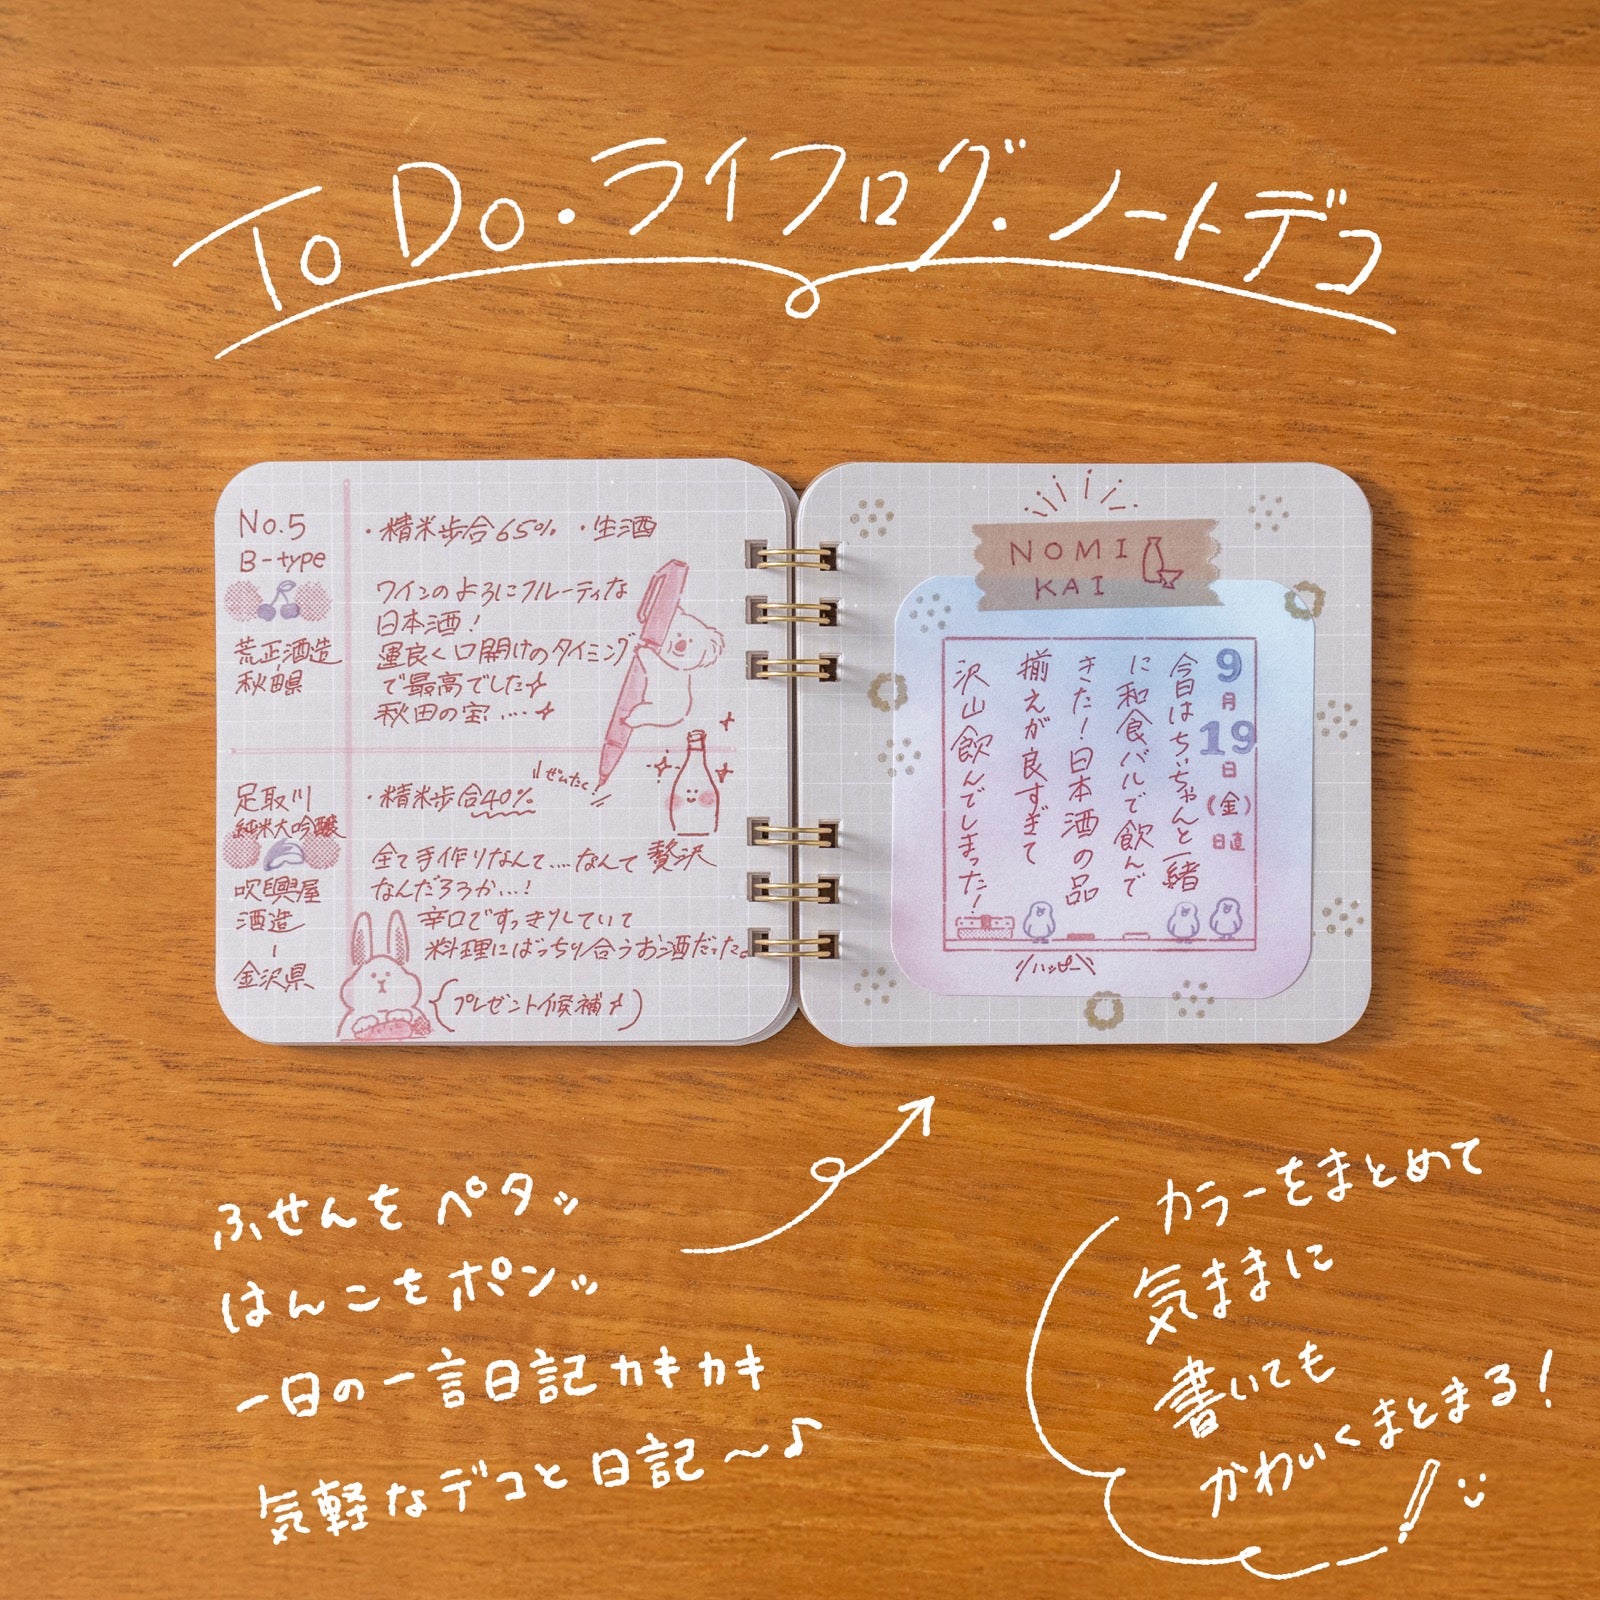 To Do・ライフログ・ノートデコ
No.5
B-type
荒正酒造
秋田県
・精米歩合65% ・生酒
ワインのようにフルーティな
日本酒!
運良く口開けのタイミング
で最高でした
秋田の宝....
足取川
純米大吟醸
吹興屋
酒造
金沢県
ぜいたく
・精米歩合40%
全て手作りなんて...なんて贅沢
なんだろうか...!
辛口ですっきりしていて
料理にばっちり合うお酒だった。
(プレゼント候補)
NOMI
KAI
9
月
19
日
(金)
日直
今日はちぃちゃんと一緒
に和食バルで飲んで
きた!日本酒の品
揃えが良すぎて
沢山飲んでしまった!
ハッピー
ふせんをペタッ
はんこをポンッ
一日の一言日記カキカキ
気軽なデコと日記〜♪
カラーをまとめて
気ままに
書いても
かわいくまとまる!